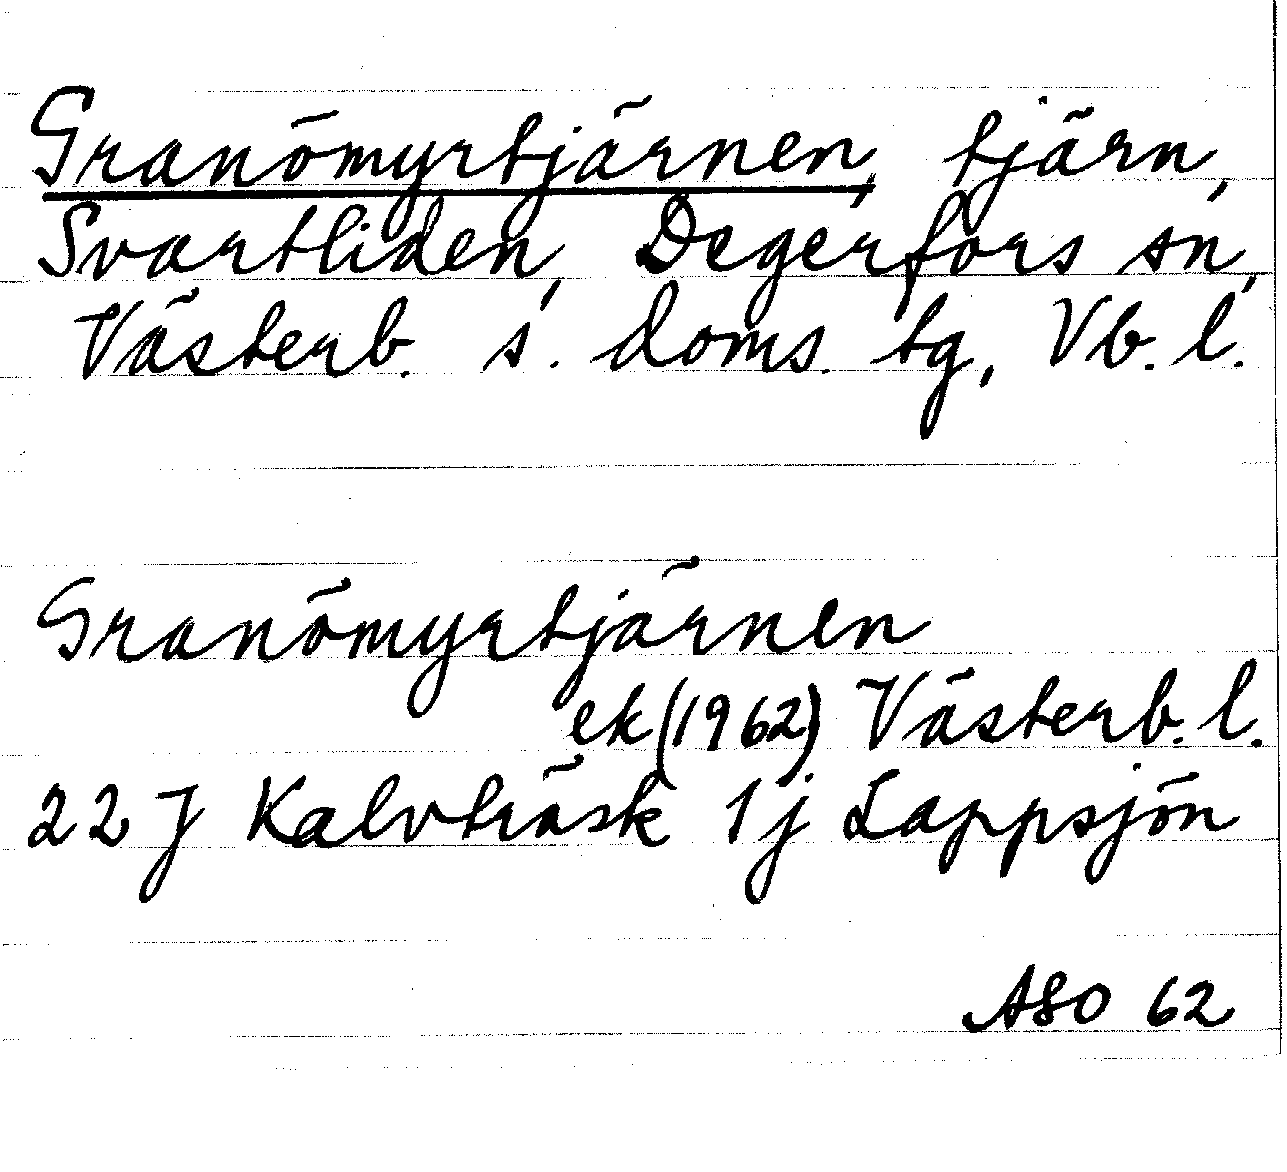 Granömyrtjärnen, tjärn,
Svartliden, Degerfors sn,
Västerb. s. doms. tg, Vb. l.
Granömyrtjärnen
ek (1962) Västerb. l.
22 J Kalvträsk 1j Lappsjön
ASO 62